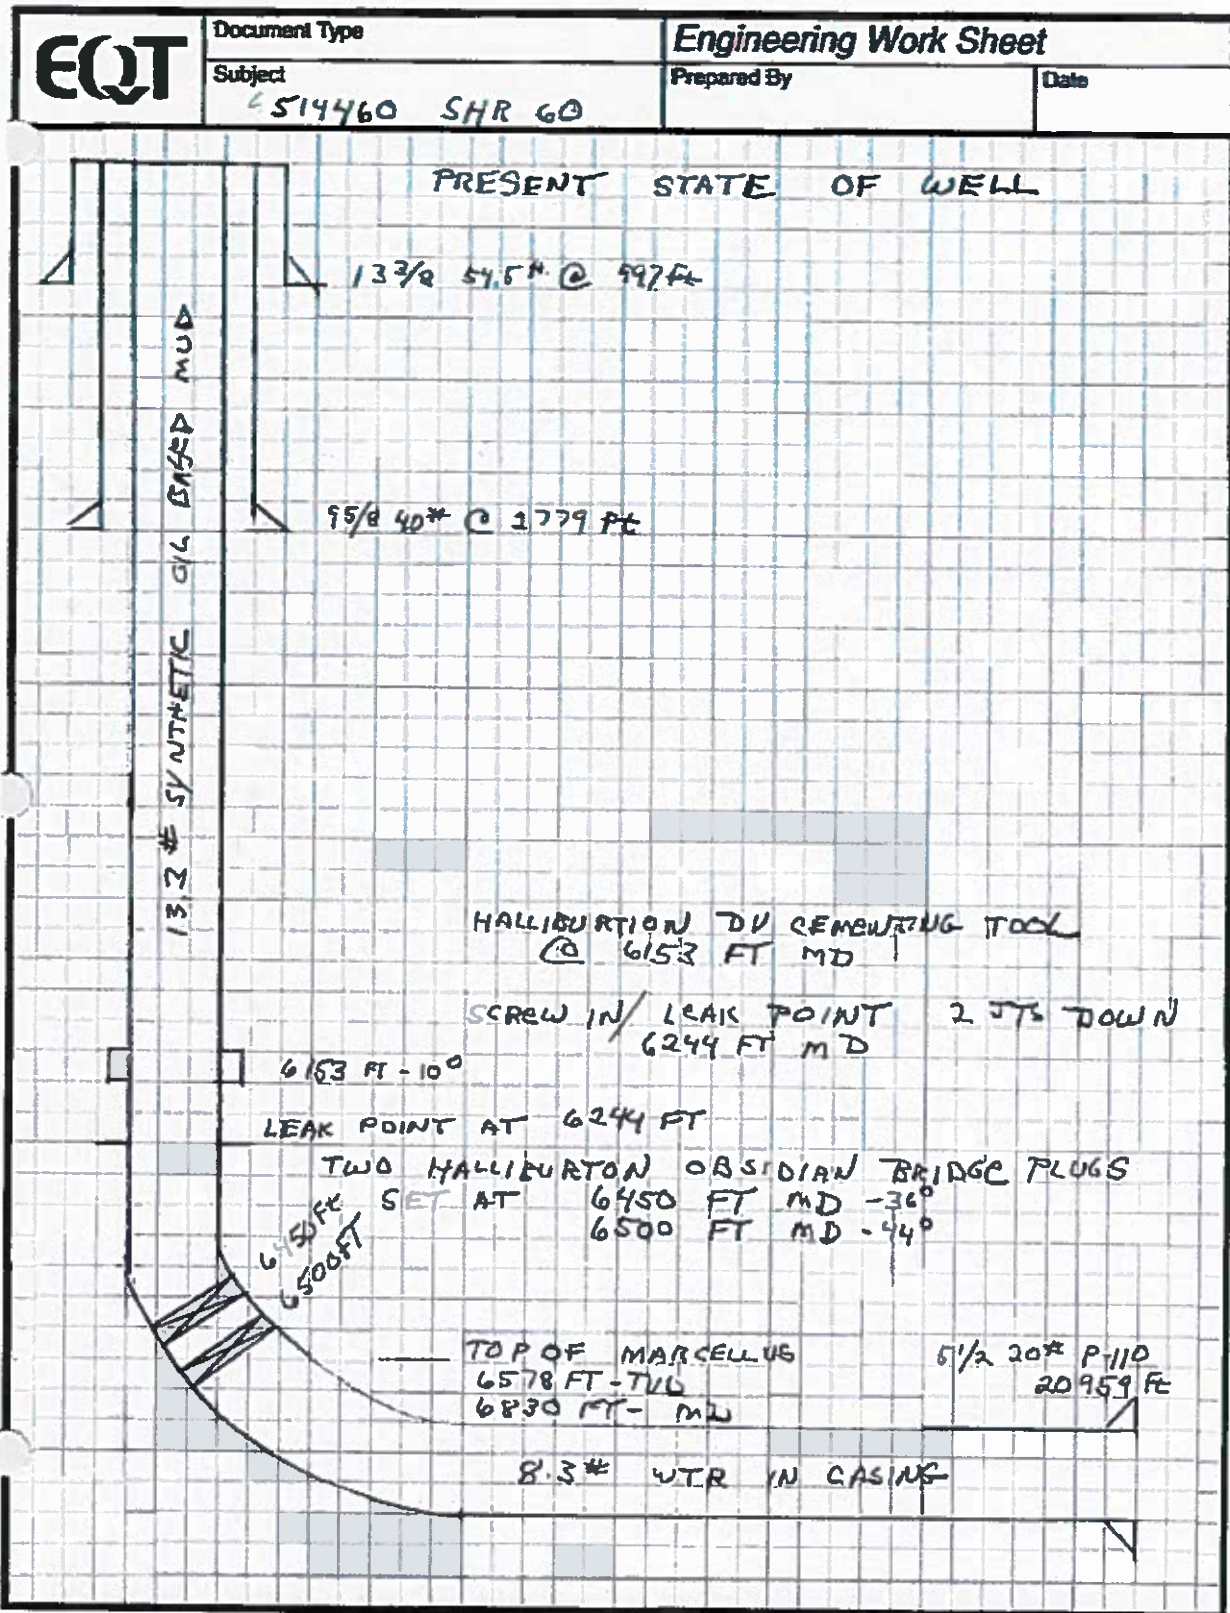 EQT
Document Type
Engineering Work Sheet
Subject
514460 SHR 60
Prepared By
Date
PRESENT STATE OF WELL
13 3/8 54.5# @ 997 Ft
13.2 # SYNTHETIC OIL BASED MUD
9 5/8 40# @ 2779 Ft
HALLIBURTION DV CEMENTING TOOL
@ 6153 FT MD
SCREW IN / LEAK POINT 2 JTS DOWN
6244 FT MD
6153 FT - 10°
LEAK POINT AT 6244 FT
TWO HALLIBURTON OBSIDIAN BRIDGE PLUGS
SET AT 6450 FT MD - 36°
6500 FT MD - 44°
6450 Ft
6500 FT
TOP OF MARCELLUS
6578 FT - TVD
6830 FT - MD
5 1/2 20# P-110
20959 Ft
8.3# WTR IN CASING